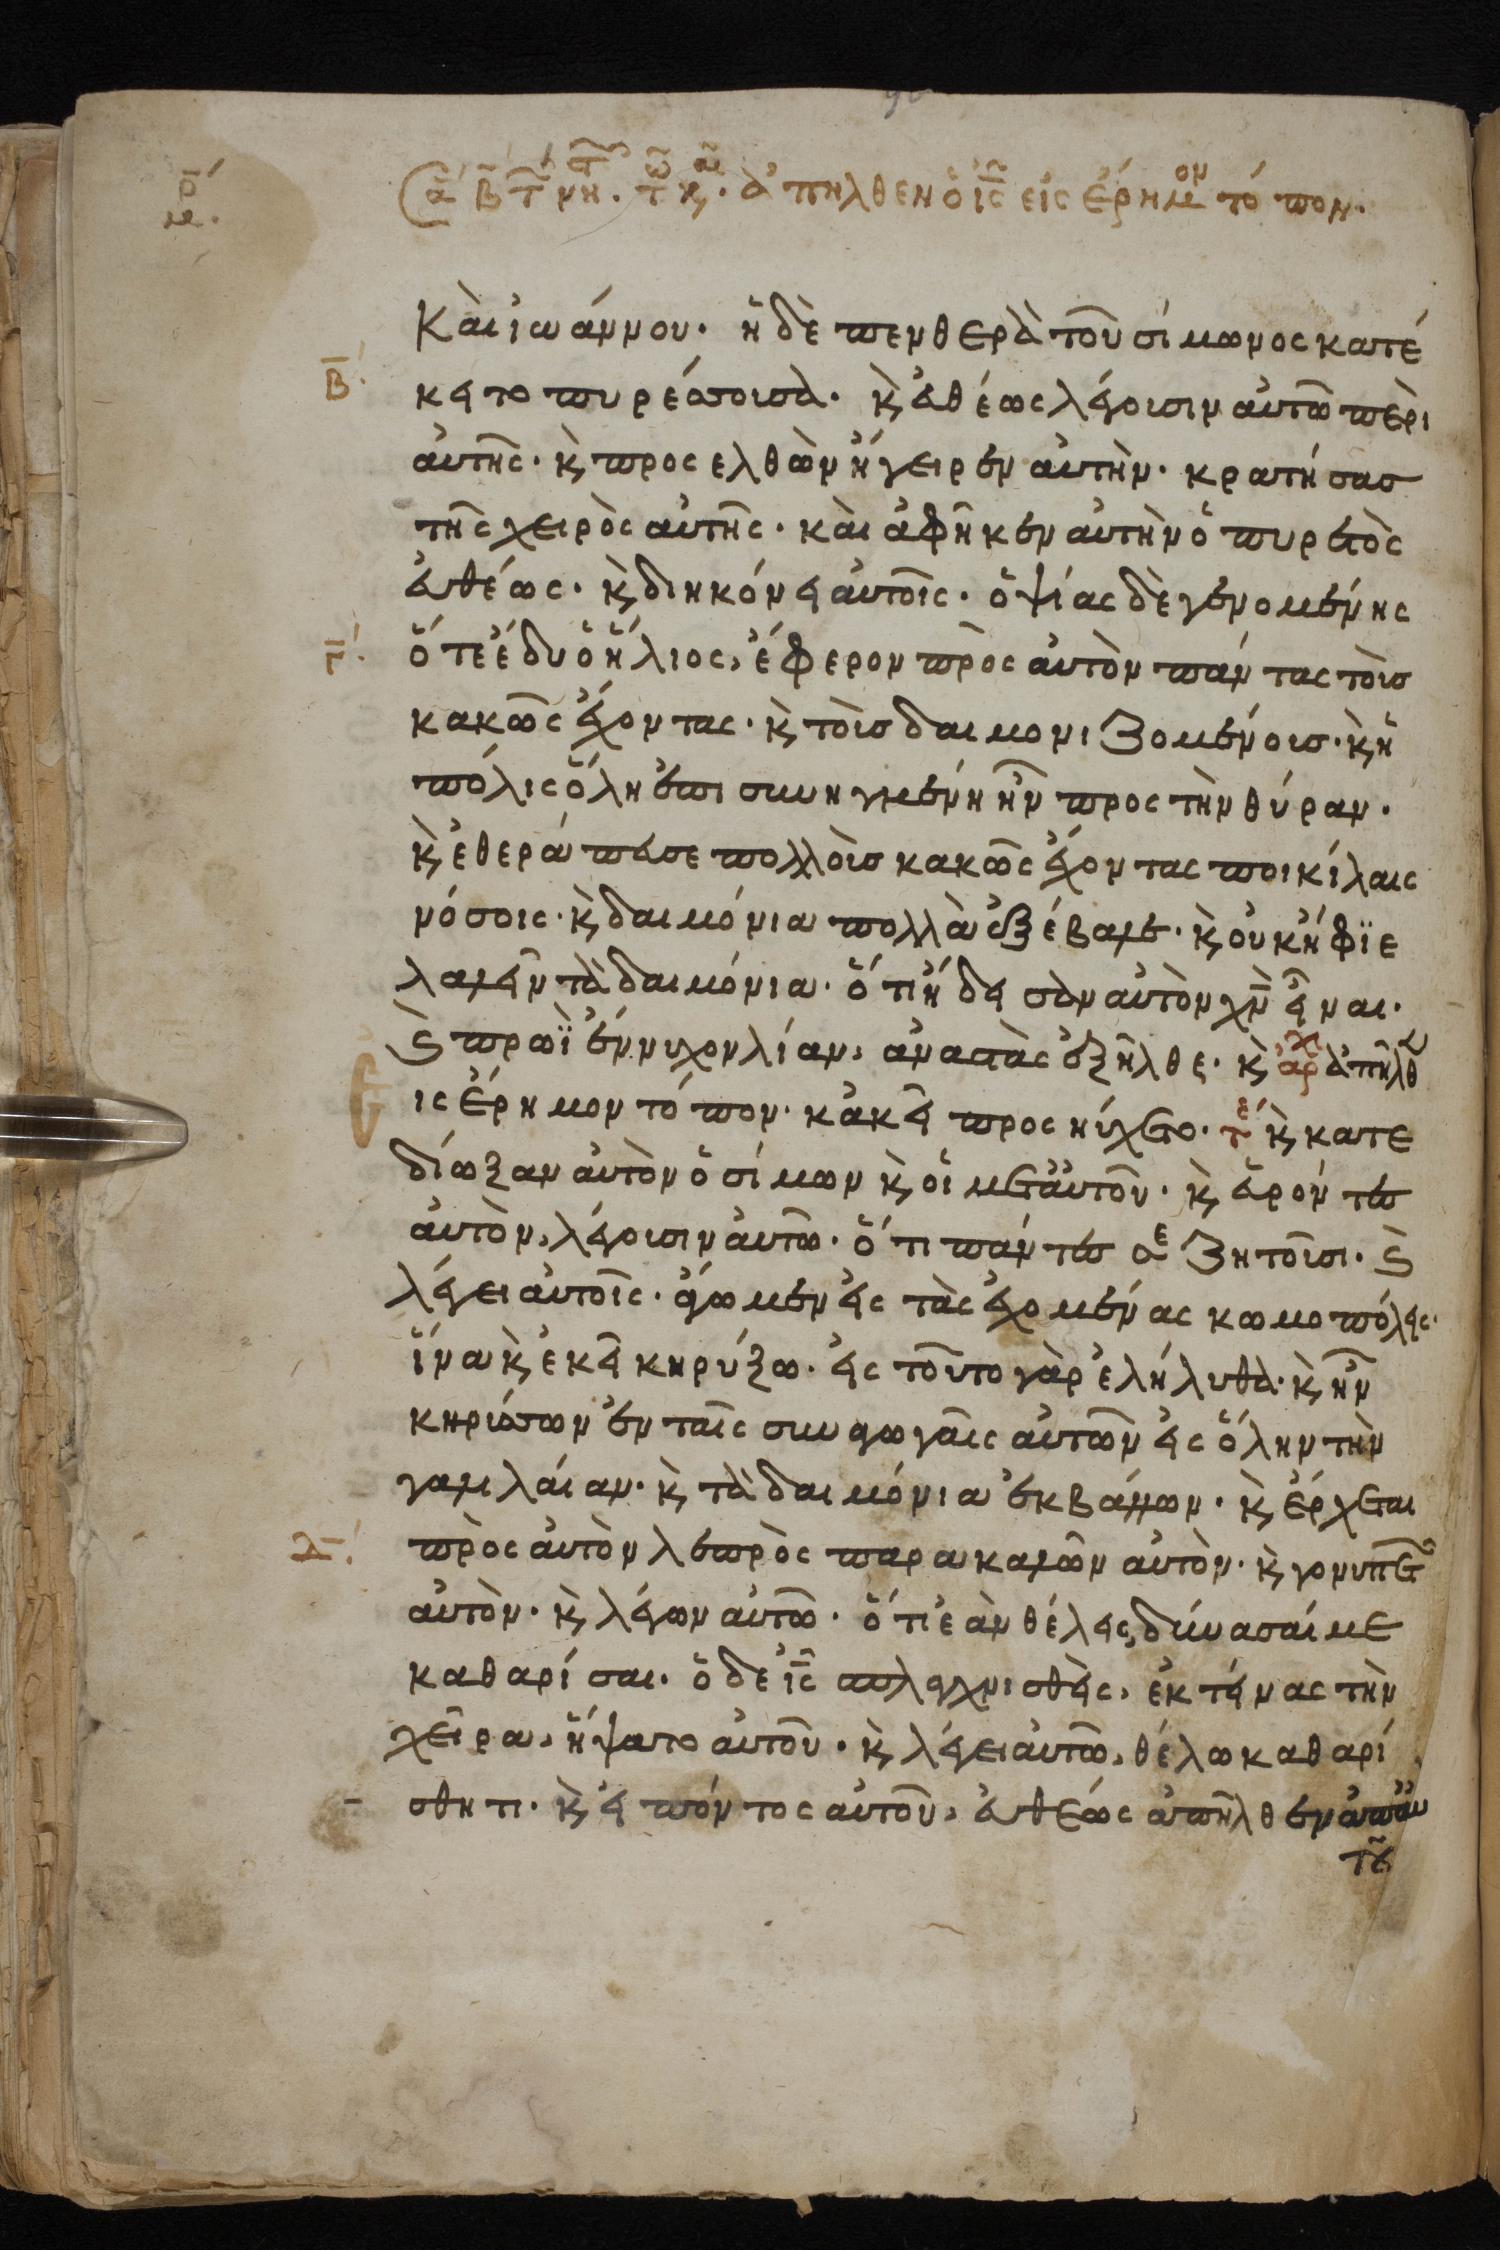 ἀπῆλθεν ὁ ις εἰς ἔρημον τόπον.
Καὶ ἰωάννου. ἡ δὲ πενθερὰ τοῦ σίμωνος κατέ
β
κειτο πυρέσσουσα. κ εὐθέως λέγουσιν αὐτῶ περὶ
αὐτῆς. κ προσελθὼν ἤγειρεν αὐτὴν. κρατήσας
τῆς χειρὸς αὐτῆς. καὶ ἀφῆκεν αὐτὴν ὁ πυρετὸς
εὐθέως. κ διηκόνει αὐτοῖς. ὀψίας δὲ γενομένης
γ
ὅτε ἔδυ ὁ ἥλιος, ἔφερον πρὸς αὐτὸν πάντας τοὺς
κακῶς ἔχοντας. κ τοὺς δαιμονιζομένους. κ ἡ
πόλις ὅλη ἐπισυνηγμένη ἦν πρὸς τὴν θύραν.
κ ἐθεράπευσε πολλοὺς κακῶς ἔχοντας ποικίλαις
νόσοις. κ δαιμόνια πολλὰ ἐξέβαλε. κ οὐκ ἤφϊε
λαλεῖν τὰ δαιμόνια. ὅτι ἤδεισαν αὐτὸν χν εἶναι.
κ πρωῒ ἔννυχον λίαν, ἀναστὰς ἐξῆλθε. κ ἀρχ ἀπῆλθεν
ις ἔρημον τόπον. κἀκεῖ προσηύχετο. τε κ κατε
δίωξαν αὐτὸν ὁ σίμων κ οἱ μετ αὐτοῦ. κ εὑρόντες
αὐτὸν, λέγουσιν αὐτῶ. ὅτι πάντες σε ζητοῦσι. κ
λέγει αὐτοῖς. ἄγωμεν εἰς τὰς ἐχομένας κωμοπόλεις.
ἵνα κ ἐκεῖ κηρύξω. εἰς τοῦτο γὰρ ἐλήλυθα. κ ἦν
κηρύσσων ἐν ταῖς συναγωγαῖς αὐτῶν εἰς ὅλην τὴν
γαλιλαίαν. κ τὰ δαιμόνια ἐκβάλλων. κ ἔρχεται
δ
πρὸς αὐτὸν λεπρὸς παρακαλῶν αὐτὸν. κ γονυπετῶν
αὐτὸν. κ λέγων αὐτῶ. ὅτι ἐὰν θέλεις, δύνασαί με
καθαρίσαι. ὁ δε ις σπλαγχνισθεὶς, ἐκτείνας τὴν
χεῖρα, ἥψατο αὐτοῦ. κ λέγει αὐτῶ, θέλω καθαρί
σθητι. κ εἰπόντος αὐτοῦ, εὐθέως ἀπῆλθεν ἀπ αυ
τοῦ